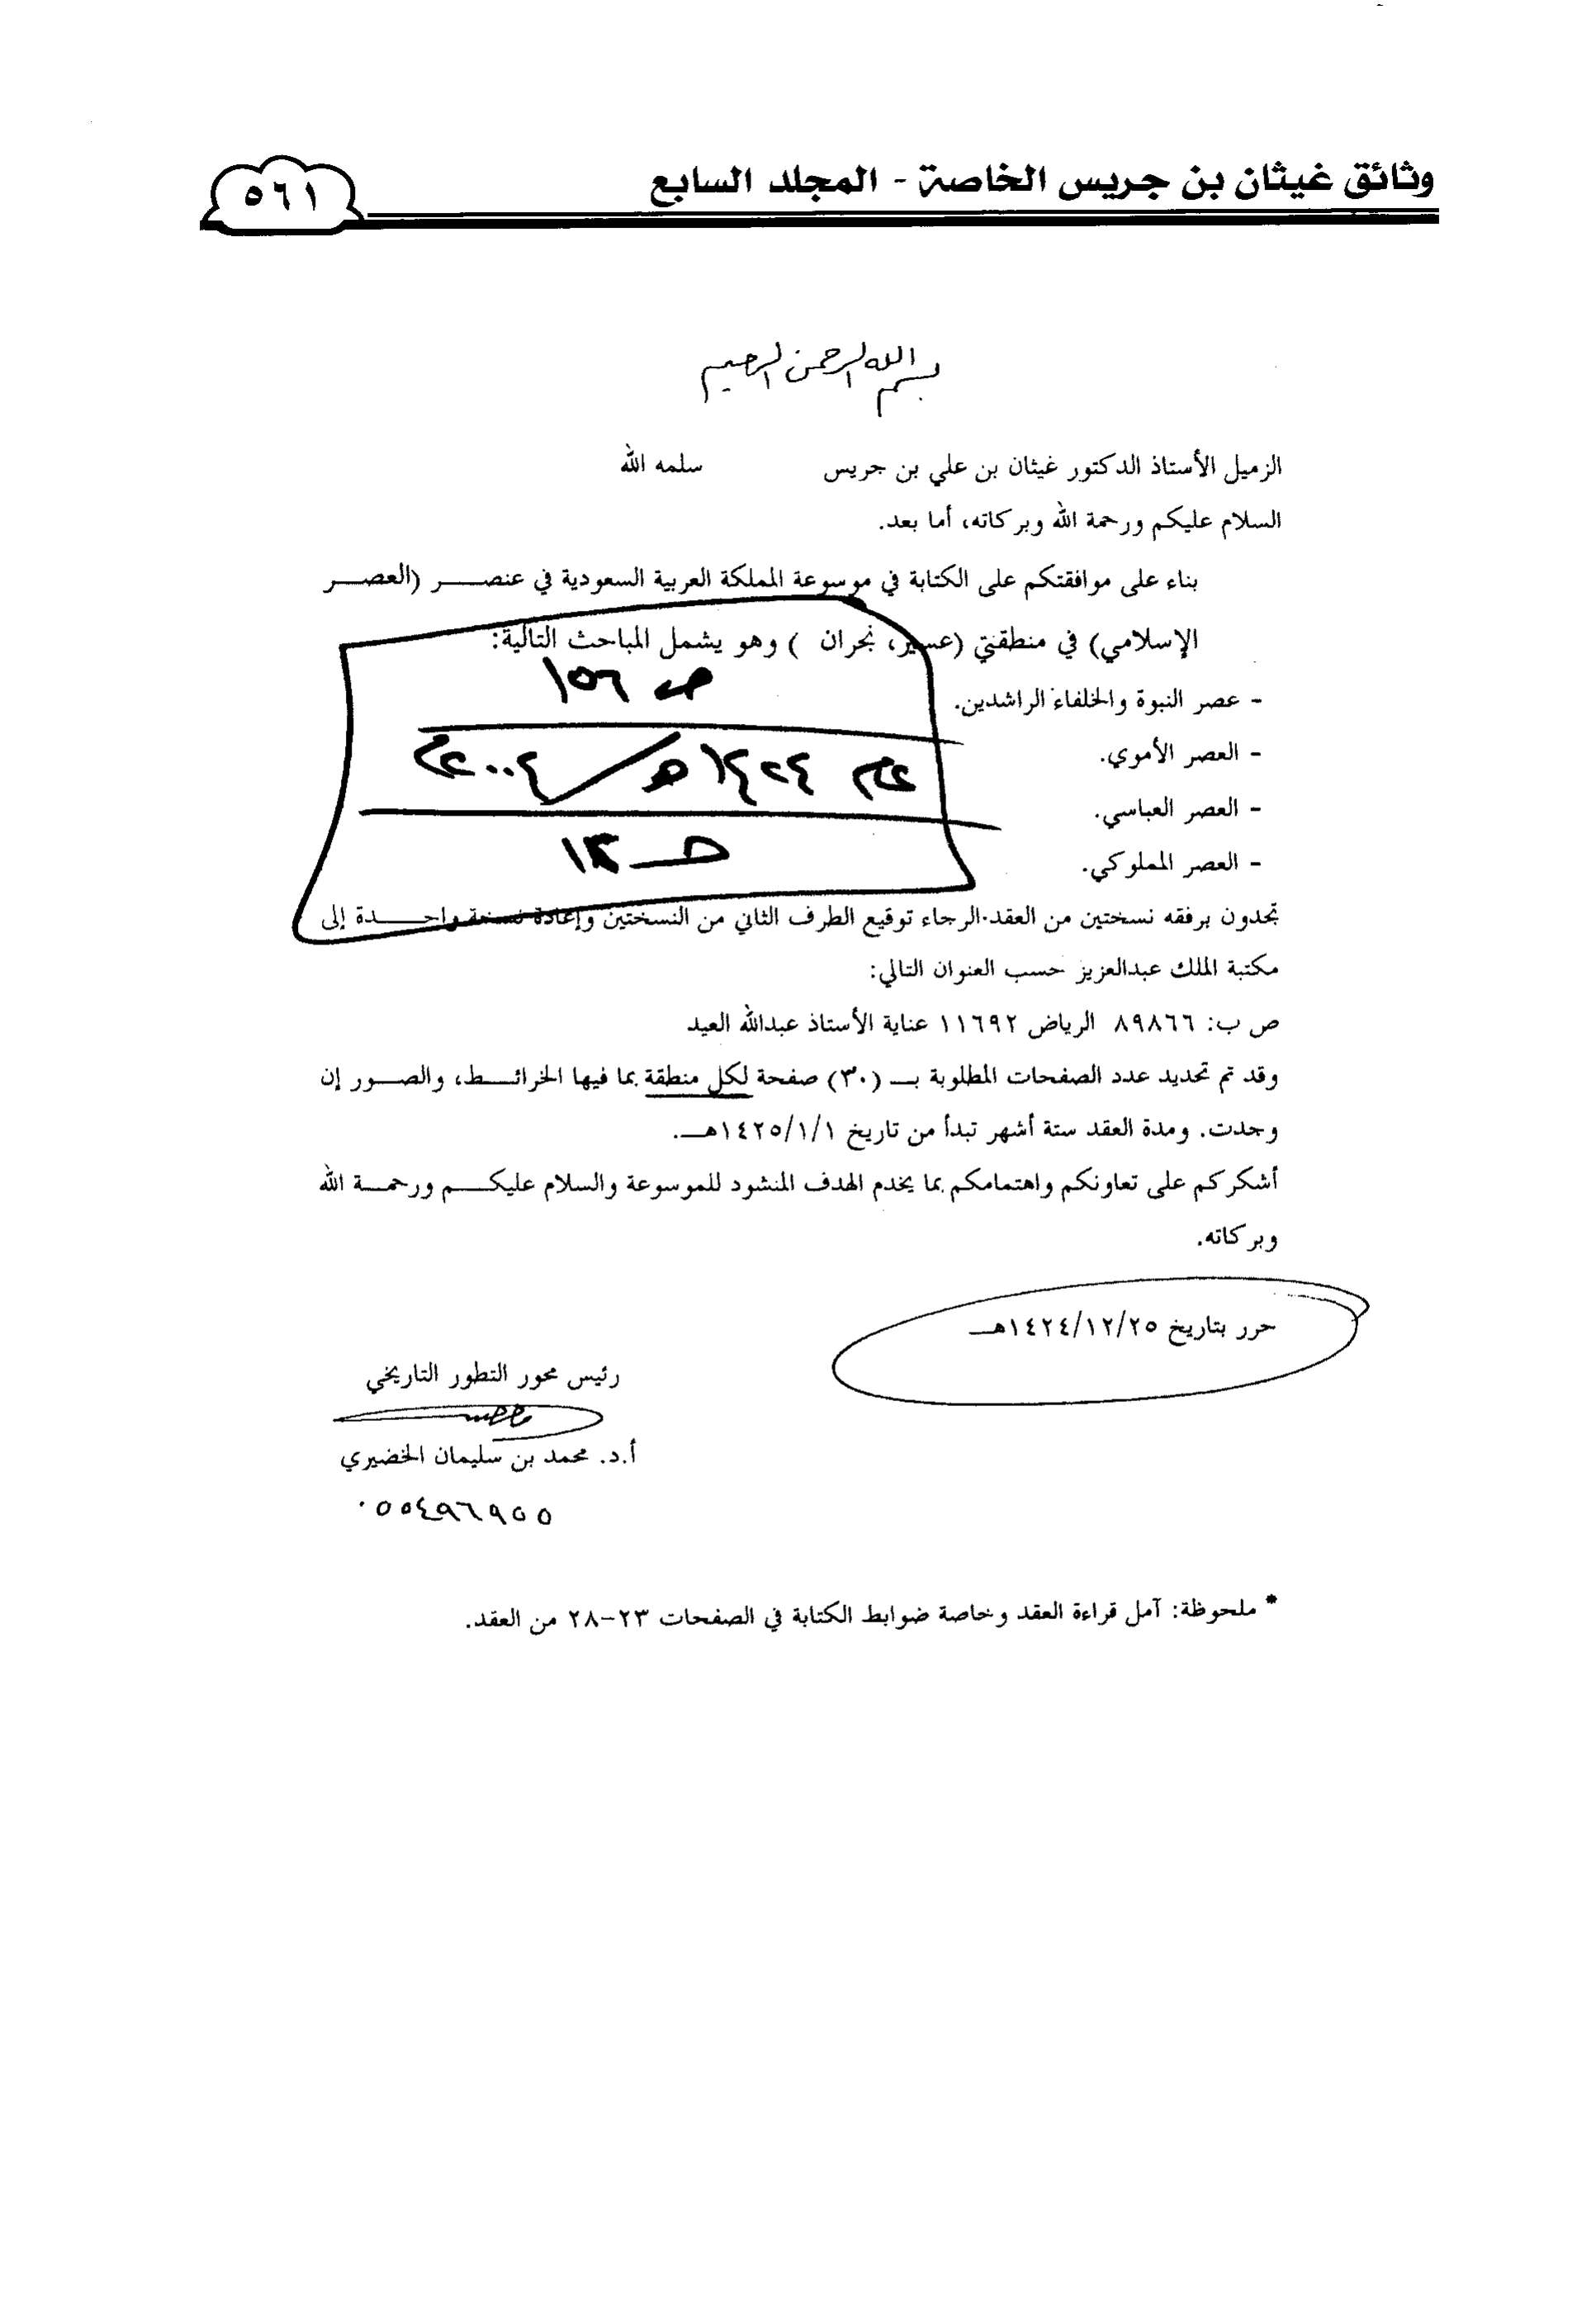 وثائق غيثان بن جريس الخاصة - المجلد السابع
٥٦١
بسم الله الرحمن الرحيم
الزميل الأستاذ الدكتور غيثان بن علي بن جريس سلمه الله
السلام عليكم ورحمة الله وبركاته، أما بعد.
بناء على موافقتكم على الكتابة في موسوعة المملكة العربية السعودية في عنصر (العصر
الإسلامي) في منطقتي (عسير، نجران ) وهو يشمل المباحث التالية:
ص ١٥٦
- عصر النبوة والخلفاء الراشدين.
عام ١٤٢٤هـ/٢٠٠٤م
- العصر الأموي.
- العصر العباسي.
- العصر المملوكي.
تجدون برفقه نسختين من العقد.الرجاء توقيع الطرف الثاني من النسختين وإعادة نسخة واحدة إلى
مكتبة الملك عبدالعزيز حسب العنوان التالي:
ص ب: ٨٩٨٦٦ الرياض ١١٦٩٢ عناية الأستاذ عبدالله العيد
وقد تم تحديد عدد الصفحات المطلوبة بـ (٣٠) صفحة لكل منطقة بما فيها الخرائط، والصور إن
وجدت. ومدة العقد ستة أشهر تبدأ من تاريخ ١٤٢٥/١/١هـ.
أشكركم على تعاونكم واهتمامكم بما يخدم الهدف المنشود للموسوعة والسلام عليكم ورحمة الله
وبركاته.
حرر بتاريخ ١٤٢٤/١٢/٢٥هـ
رئيس محور التطور التاريخي
أ.د. محمد بن سليمان الخضيري
٠٥٥٤٩٦٩٥٥
* ملحوظة: آمل قراءة العقد وخاصة ضوابط الكتابة في الصفحات ٢٣-٢٨ من العقد.